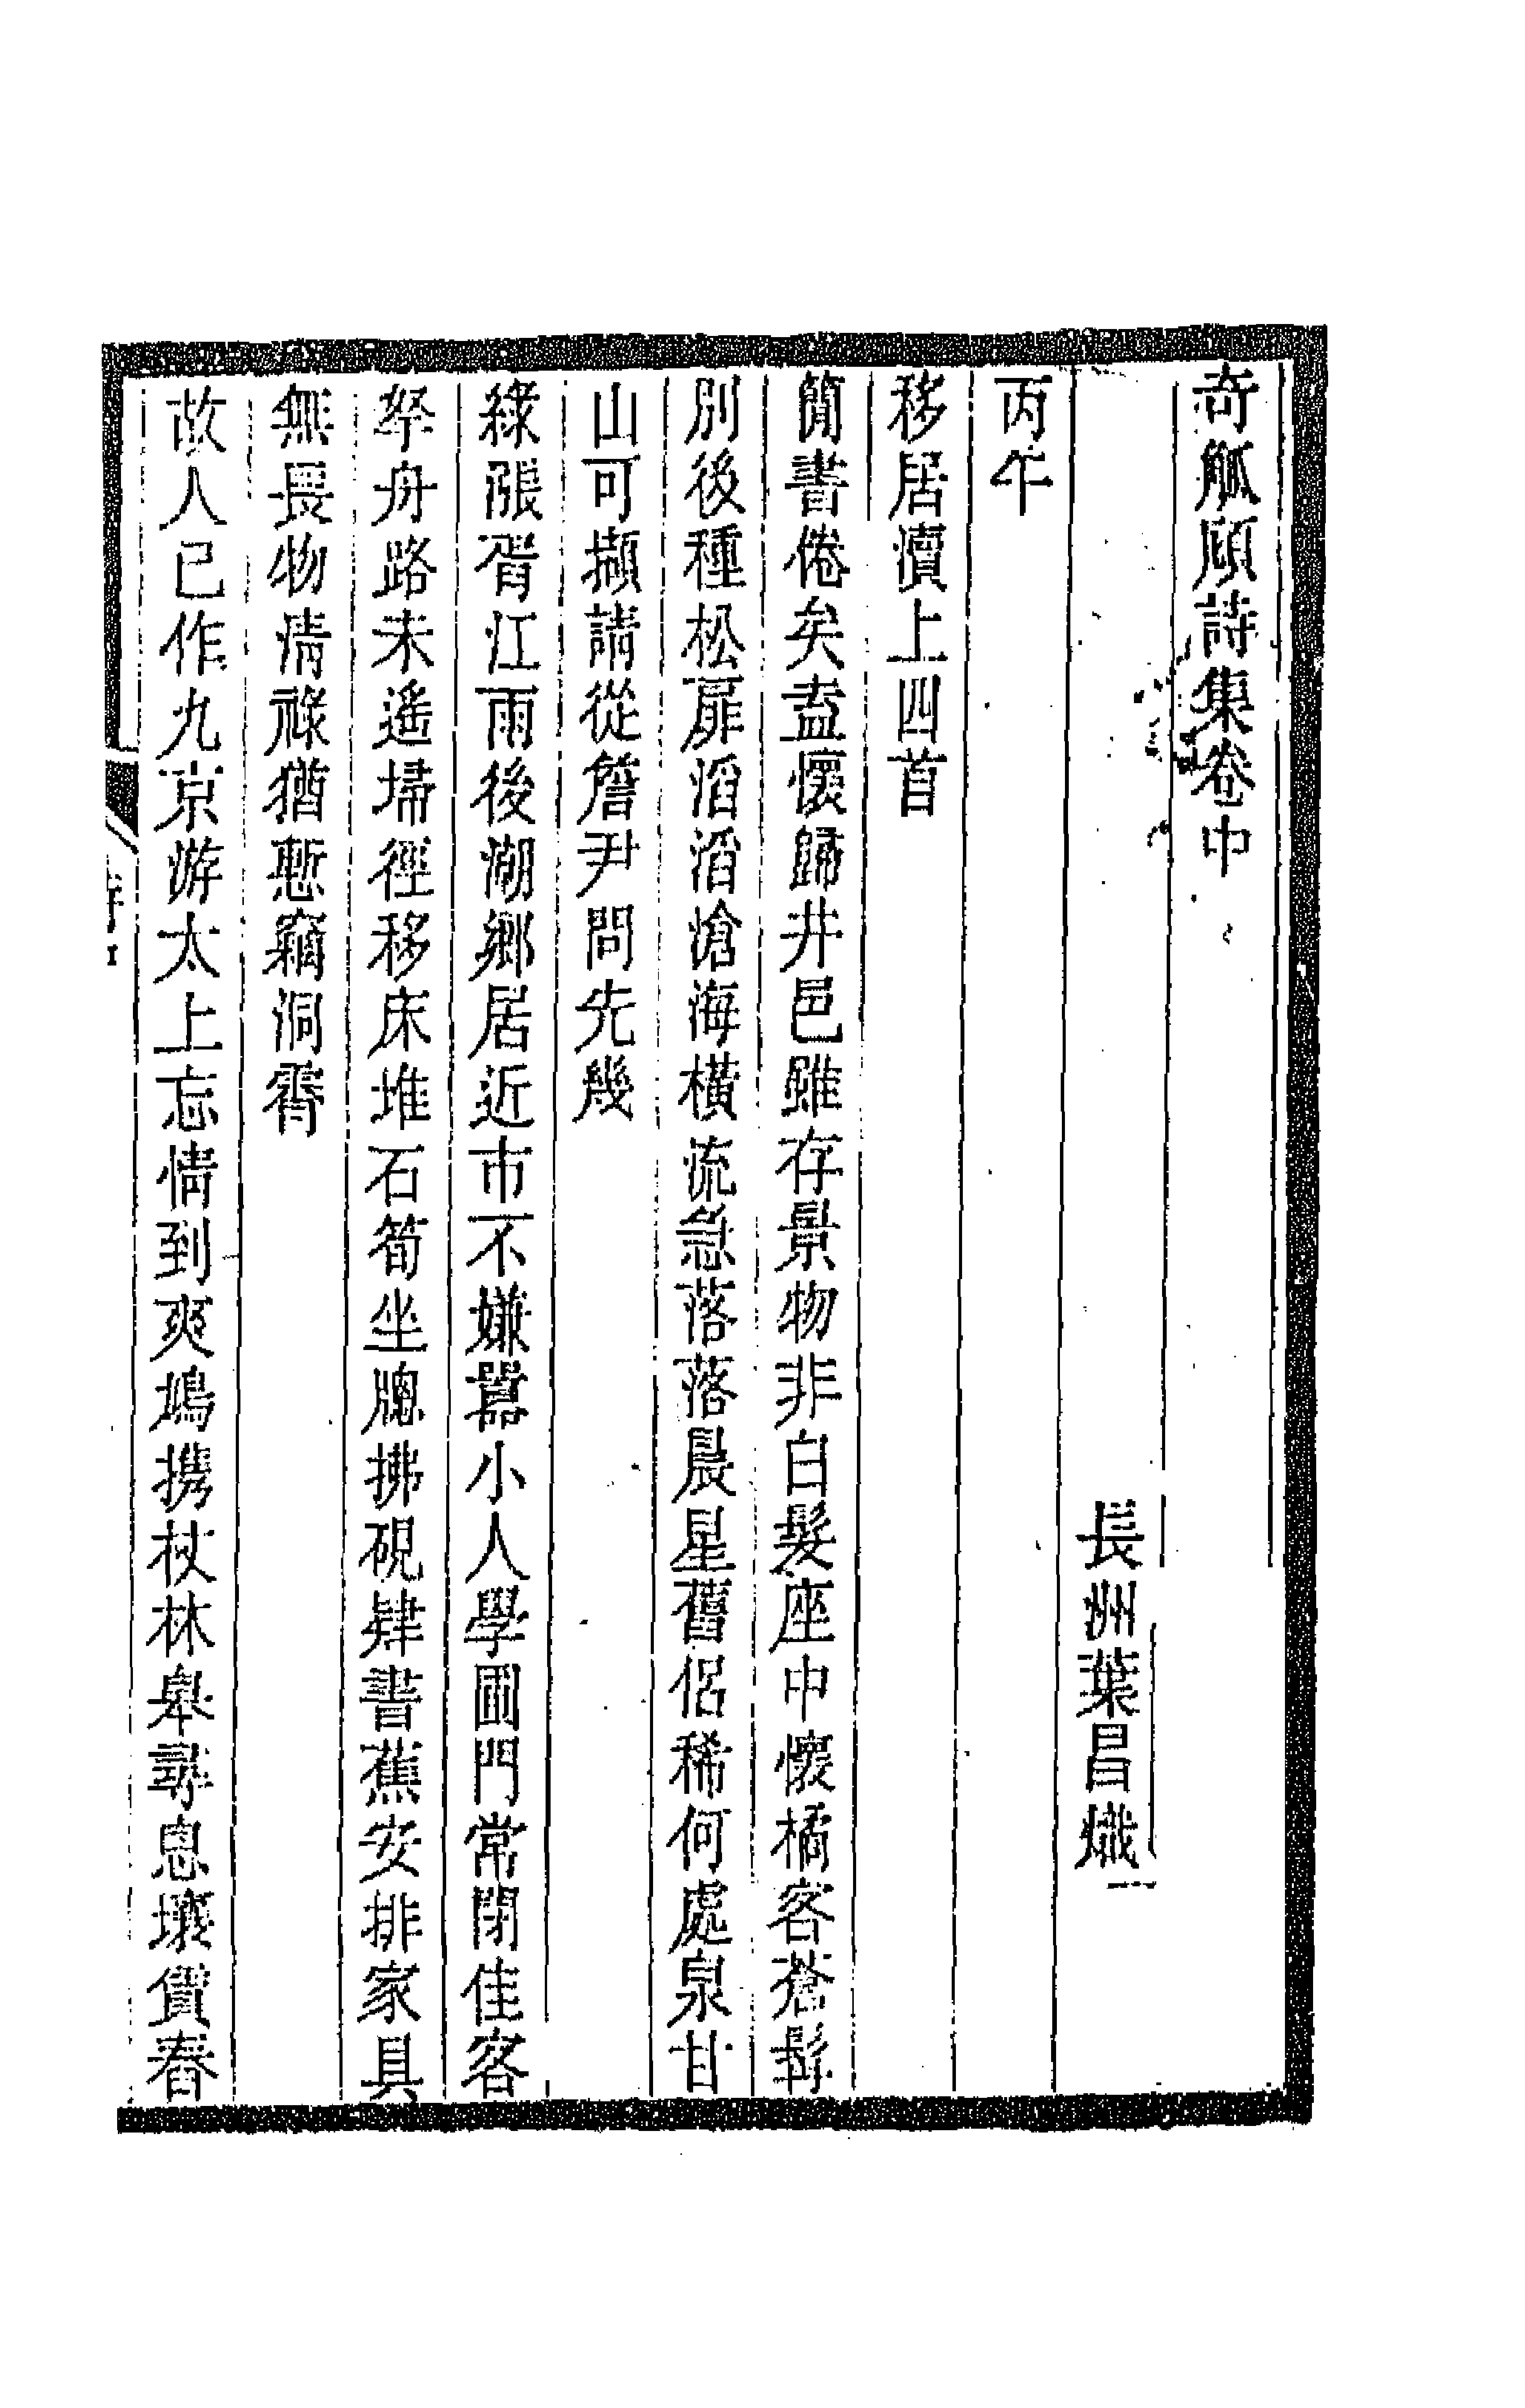 奇觚廎詩集卷中
長洲葉昌熾
丙午
移居瀆上四首
簡書倦矣盍懷歸井邑雖存景物非白髮座中懷橘客蒼髥
別後種松扉滔滔滄海橫流急落落晨星舊侶稀何處泉甘
山可擷請從詹尹問先幾
綠漲胥江雨後潮鄉居近市不嫌囂小人學圃門常閉佳客
拏舟路未遙埽徑移床堆石筍坐牕拂硯肄書蕉安排家具
無畏物清祿猶慙竊洞霄
故人已作九京游太上忘情到爽鳩携杖林皋尋息壤賃舂